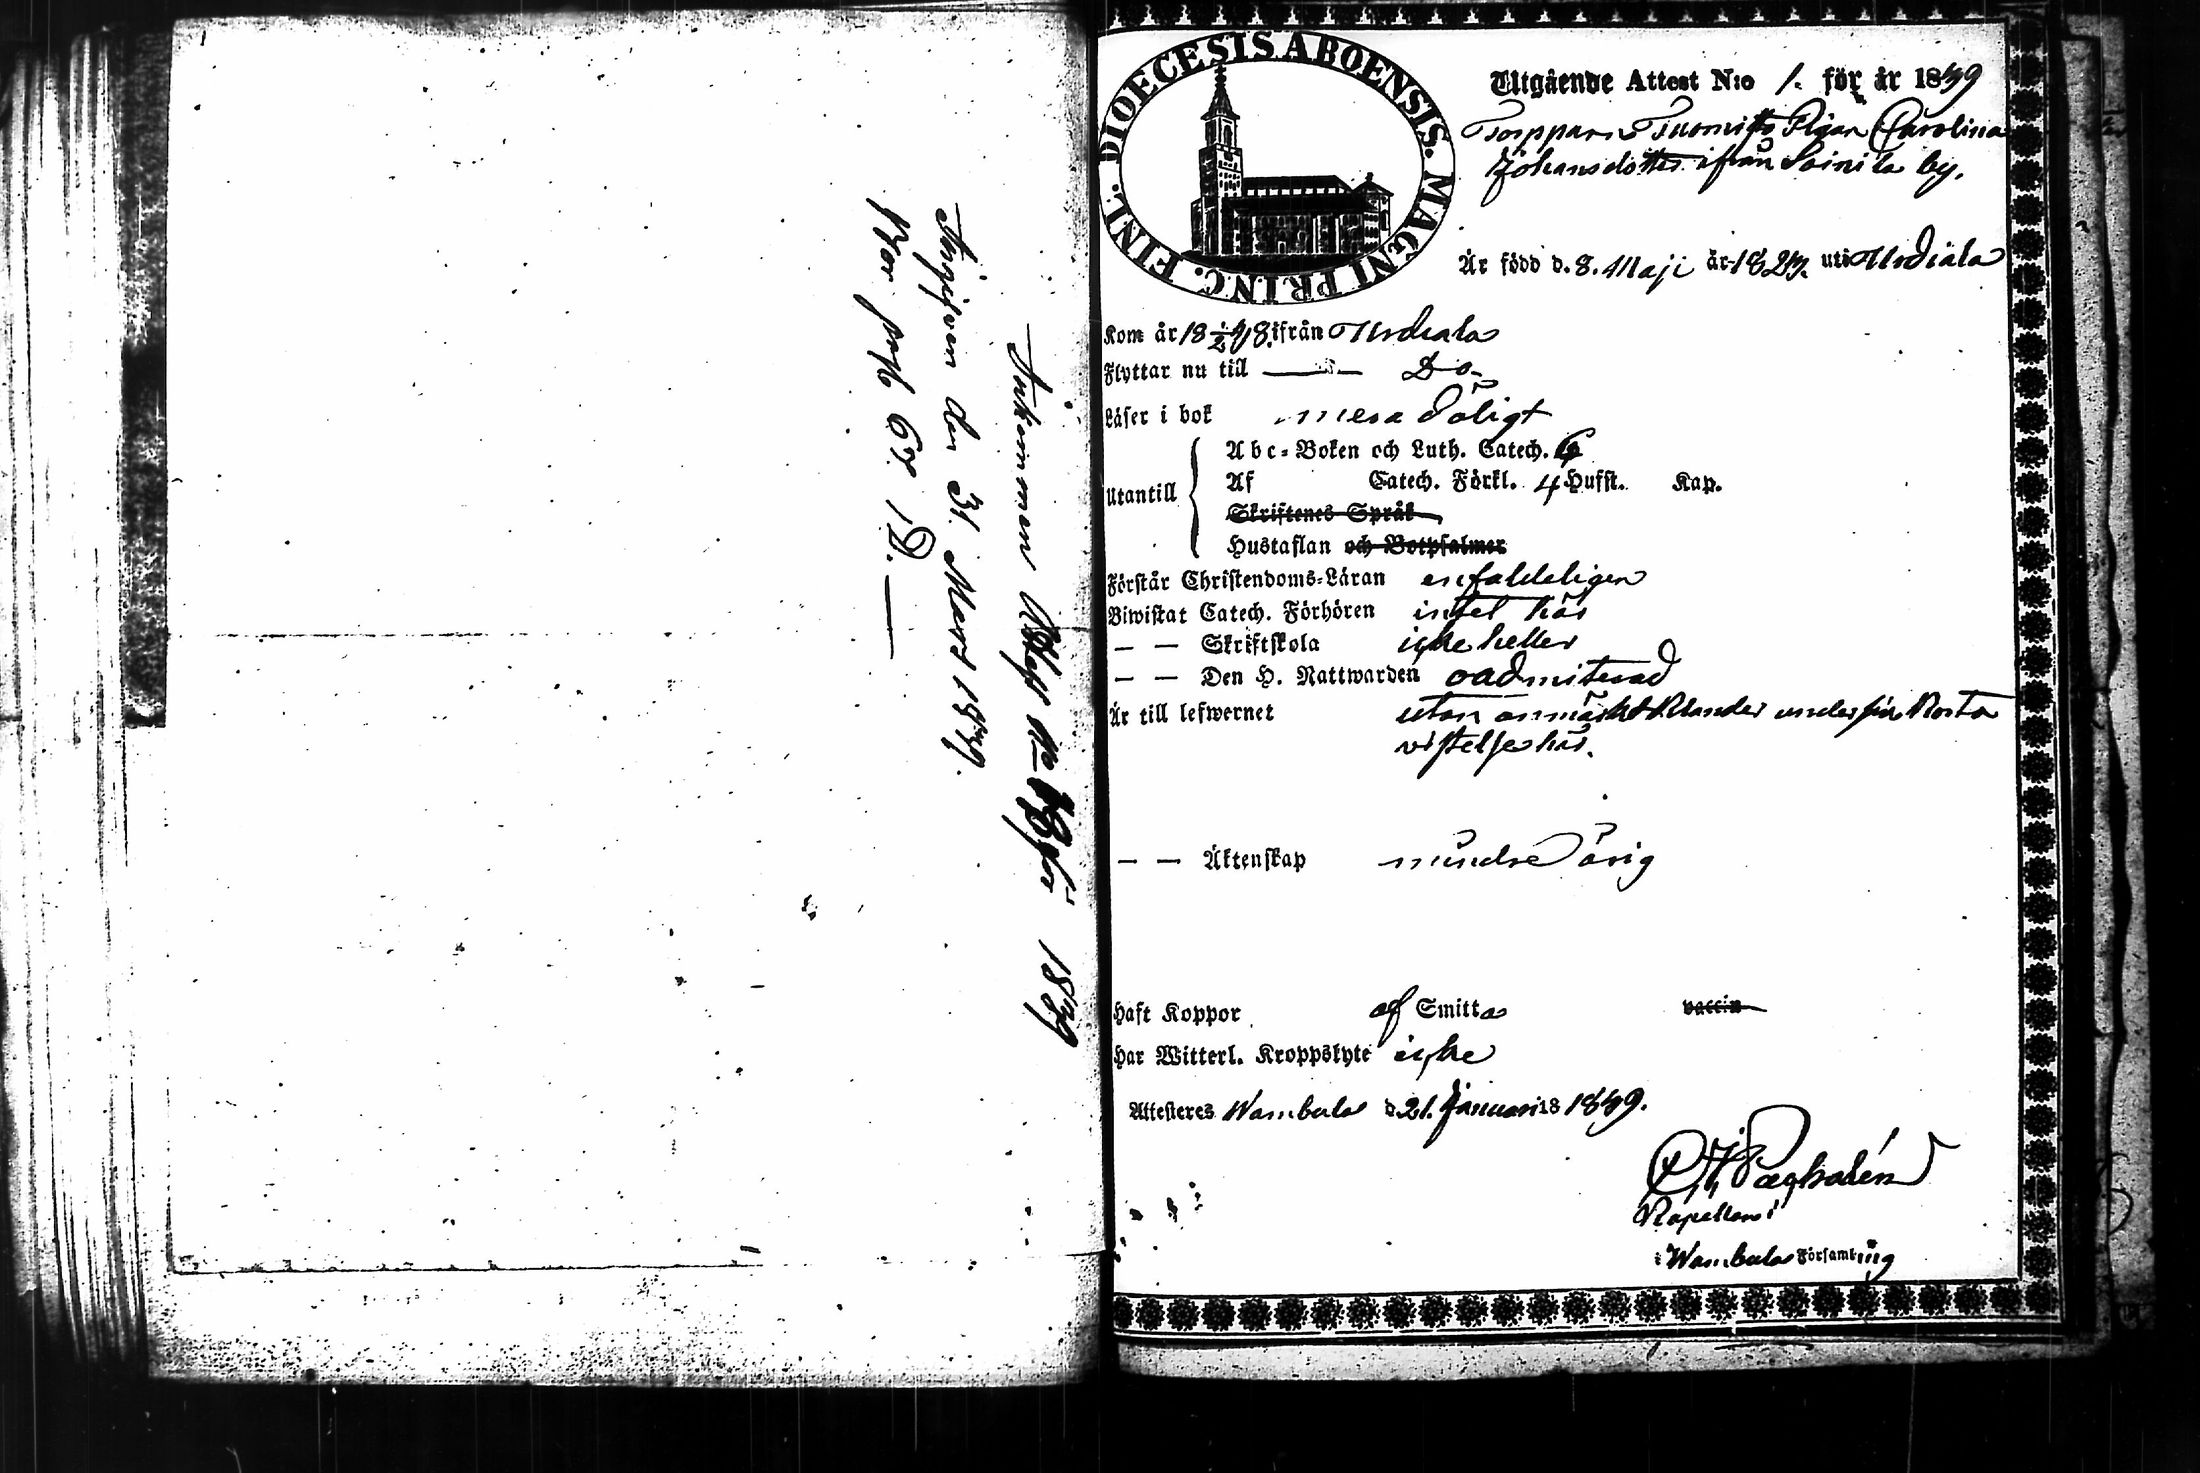 Inkommen Attest No 18 för 1849
Angifven den 31. Mars 1849.
Bor pag. 67. 1 D.
DIOECESIS ABOENSIS. MAGNI PRINC. FINL.
Utgående Attest N:o 1. för år 1849
Torpparen Tuomisto Pigan Carolina
Johansdotter ifrån Soinila by.
Är född d. 8. Maji år 182 uti Urdiala
Kom år 18 48. ifrån Urdiala
Flyttar nu till — Do
Läser i bok mera dåligt
Utantill
Abc-Boken och Luth. Catech.
Af Catech. Förkl. 4 Hufst. Kap.
Skriftenes Språk
Hustaflan och Botpsalmer
Förstår Christendoms-Läran enfaldeligen
Biwistat Catech. Förhören intet här
— — Skriftskola icke heller
— — Den H. Nattwarden oadmiterad
Är till lefwernet utan anmärkt klander under sin korta
vistelse här.
— — Äktenskap mindre årig
Haft Koppor af Smitta vaccin
Har Witterl. Kroppslyte icke
Attesteres Wambula d 21. Januari 18 1849.
Kapellan i
i Wambula Församling